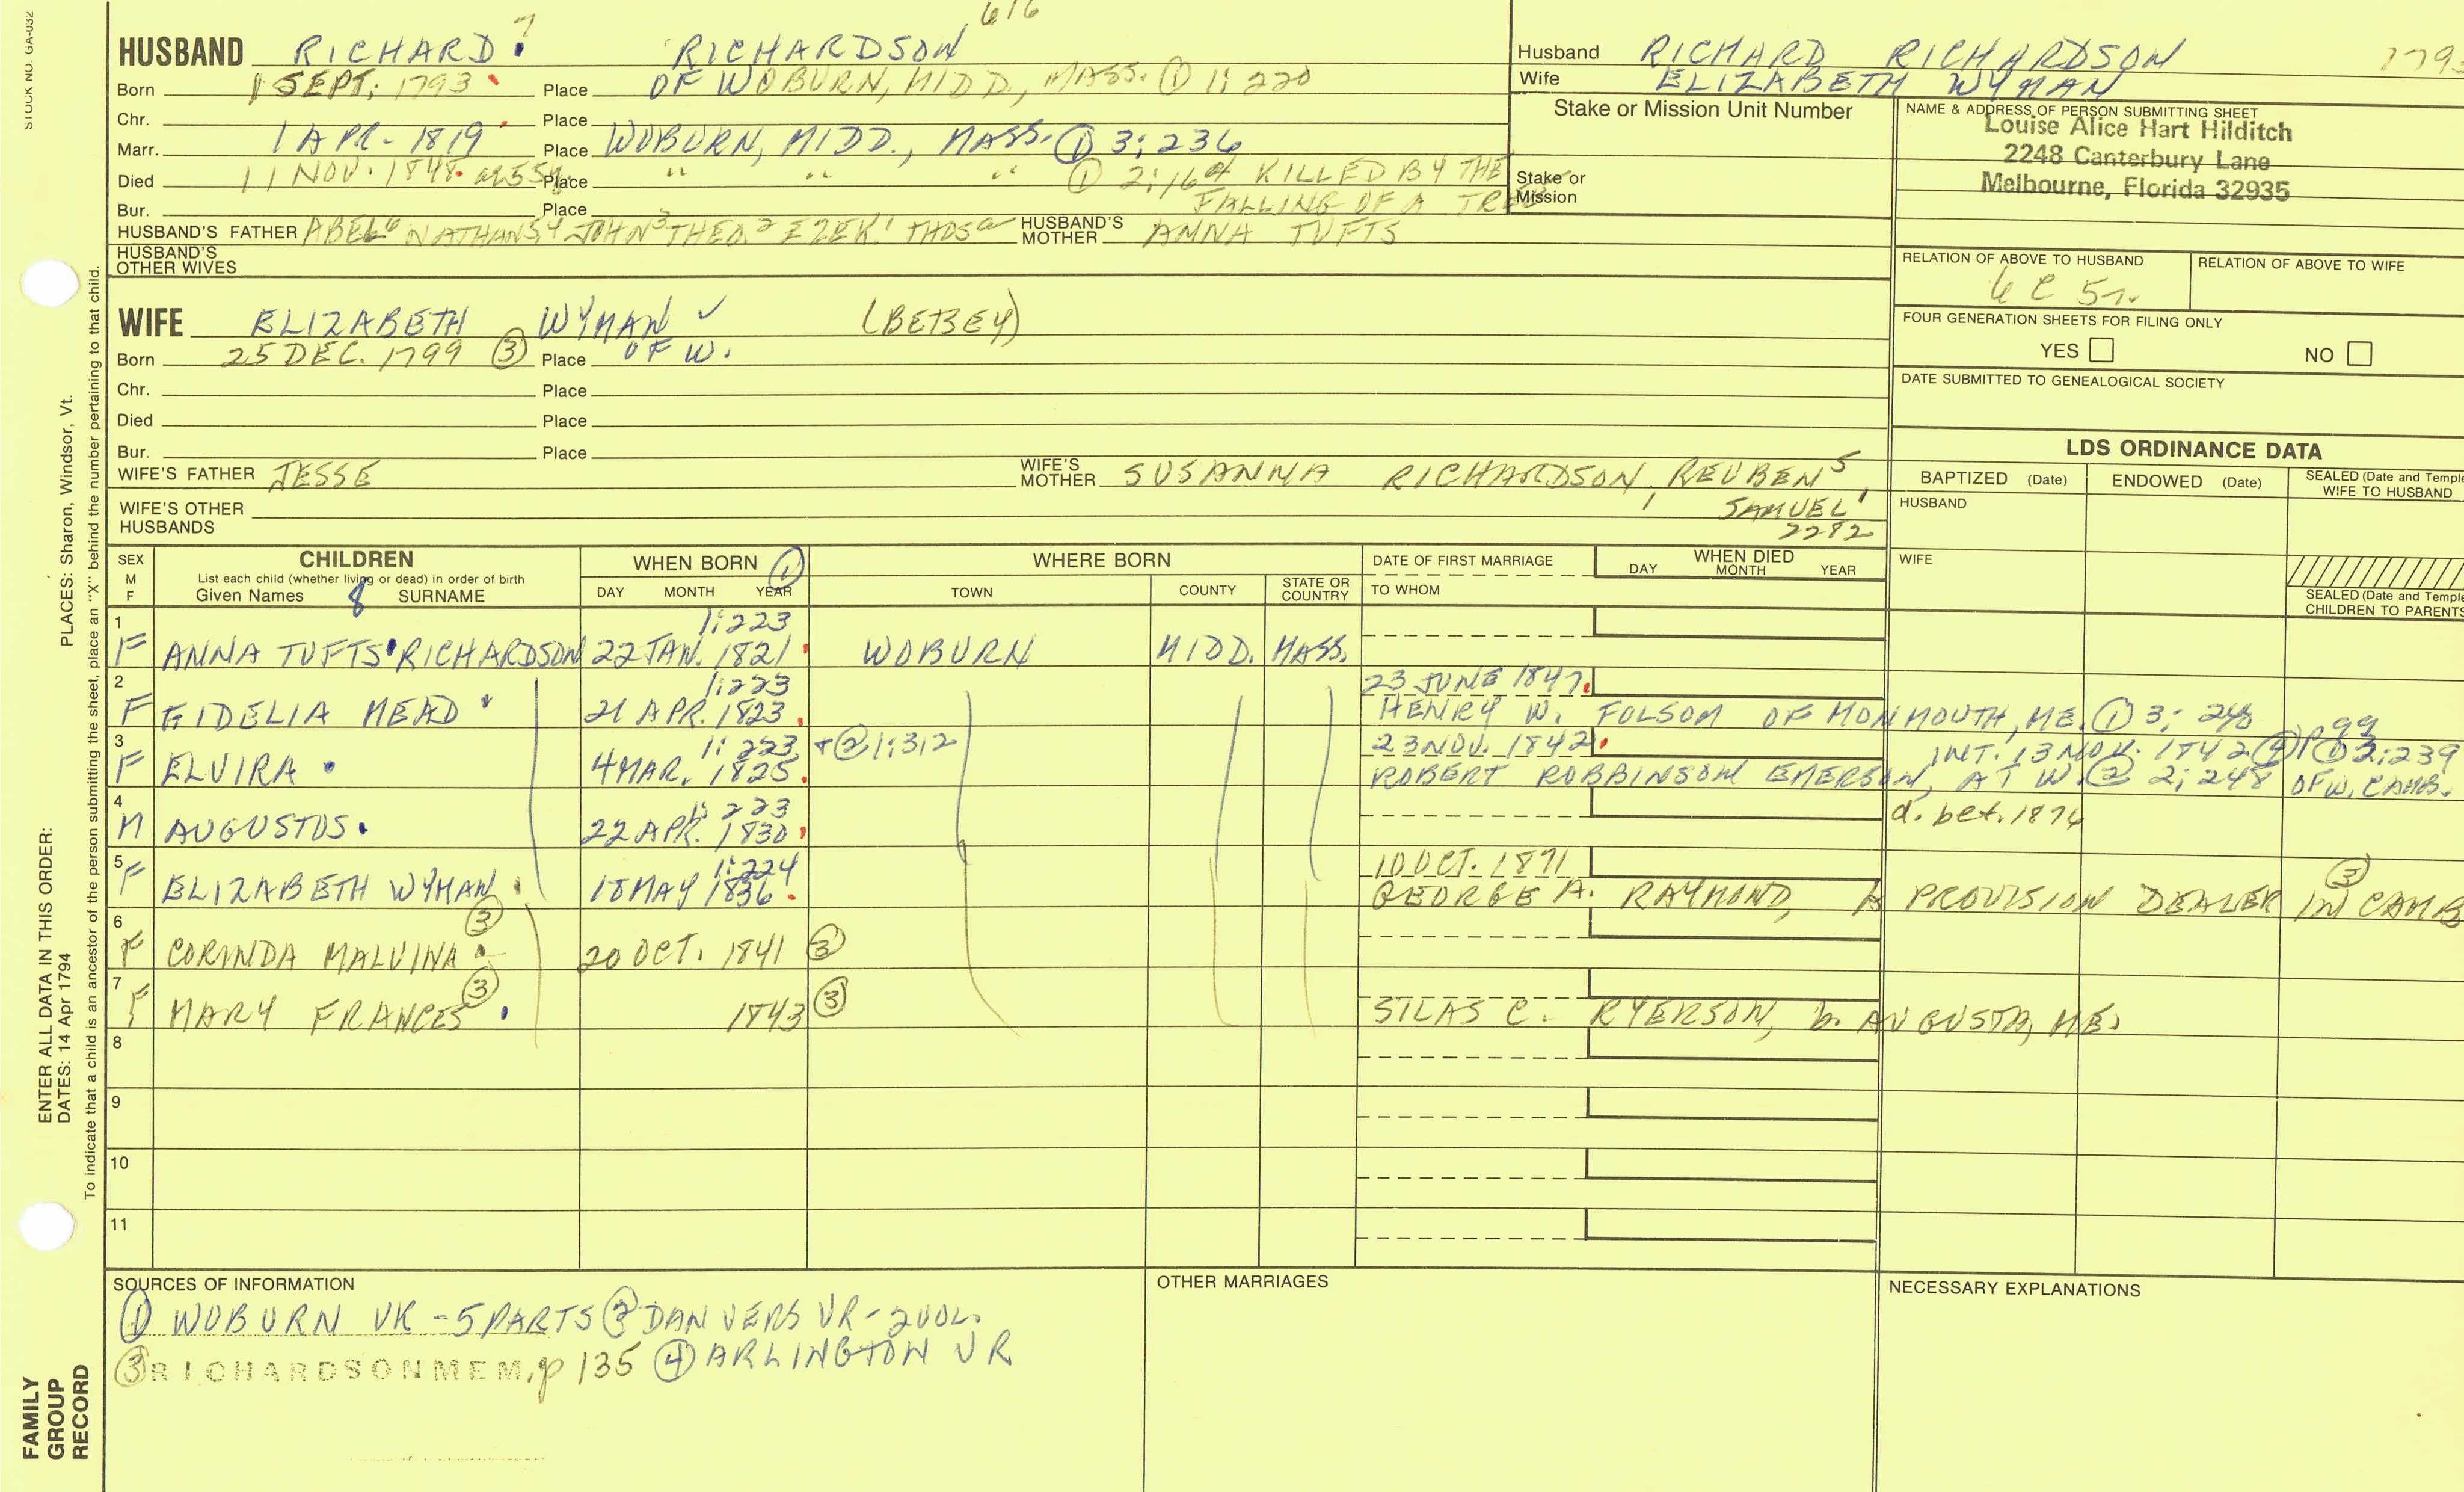 STOCK NO. GA-032
616
HUSBAND RICHARD ? RICHARDSON
Born 1 SEPT. 1793 Place OF WOBURN, MIDD., MASS. ① 1:220
Chr. Place
Marr. 1 APR- 1819 Place WOBURN, MIDD., MASS. ① 3:236
Died 11 NOV. 1848 Place " " " ① KILLED BY THE
Bur. Place FALLING OF A TREE
HUSBAND'S FATHER ABEL⁶ NATHAN JOHN³ THEO.² EZEK.¹ THOS HUSBAND'S MOTHER ANNA TUFTS
HUSBAND'S OTHER WIVES
Husband RICHARD RICHARDSON
Wife ELIZABETH WYMAN
Stake or Mission Unit Number
Stake or Mission
NAME & ADDRESS OF PERSON SUBMITTING SHEET
Louise Alice Hart Hilditch
2248 Canterbury Lane
Melbourne, Florida 32935
RELATION OF ABOVE TO HUSBAND RELATION OF ABOVE TO WIFE
FOUR GENERATION SHEETS FOR FILING ONLY
YES NO
DATE SUBMITTED TO GENEALOGICAL SOCIETY
WIFE ELIZABETH WYMAN ✓ (BETSEY)
Born 25 DEC. 1799 ③ Place OF W.
Chr. Place
Died Place
Bur. Place
WIFE'S FATHER JESSE WIFE'S MOTHER SUSANNA RICHARDSON, REUBEN⁵,
SAMUEL¹
2282
WIFE'S OTHER HUSBANDS
LDS ORDINANCE DATA
BAPTIZED (Date) ENDOWED (Date) SEALED (Date and Temple
WIFE TO HUSBAND
HUSBAND
WIFE
SEALED (Date and Temple
CHILDREN TO PARENTS
SEX M F CHILDREN WHEN BORN ① WHERE BORN DATE OF FIRST MARRIAGE WHEN DIED
List each child (whether living or dead) in order of birth DAY MONTH YEAR
Given Names 8 SURNAME DAY MONTH YEAR TOWN COUNTY STATE OR COUNTRY TO WHOM
1 1:223
F ANNA TUFTS RICHARDSON 22 JAN. 1821 WOBURN MIDD. MASS.
2 1:223 23 JUNE 1847
F FIDELIA MEAD 21 APR. 1823 HENRY W. FOLSOM OF MONMOUTH, ME. ① 3:
3 1:223 + ② 1:312 23 NOV. 1842 INT. 13 1842 ④ 2:239
F ELVIRA 4 MAR. 1825 ROBERT ROBBINSON EMERSON, AT W. ② 2:248 OF W. CAMB.
4 1:223
M AUGUSTUS 22 APR. 1830 d. bet. 1876
5 1:224 10 OCT. 1871 ③
F ELIZABETH WYMAN 18 MAY 1836 GEORGE A. RAYMOND, A PROVISION DEALER IN CAMB
6 ③
F CORINDA MALVINA 20 OCT. 1841 ③
7 ③
F MARY FRANCES 1843 ③ SILAS C. RYERSON, b. AUGUSTA, ME.
8
9
10
11
SOURCES OF INFORMATION OTHER MARRIAGES NECESSARY EXPLANATIONS
① WOBURN VR - 5 PARTS ② DANVERS VR - 2 VOL.
③ RICHARDSON MEM. p 135 ④ ARLINGTON VR
PLACES: Sharon, Windsor, Vt.
To indicate that a child is an ancestor of the person submitting the sheet, place an "X" behind the number pertaining to that child.
ENTER ALL DATA IN THIS ORDER:
DATES: 14 Apr 1794
FAMILY GROUP RECORD